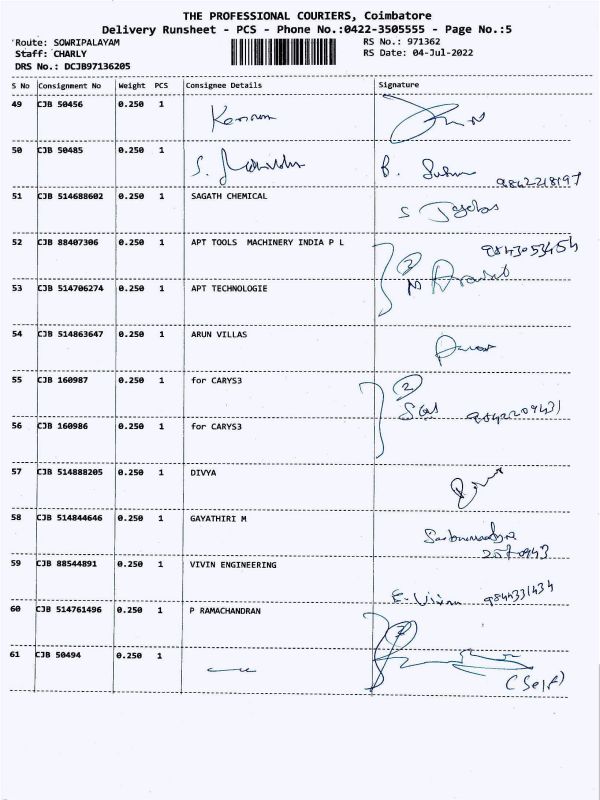 THE PROFESSIONAL COURIERS, Coimbatore
Delivery Runsheet - PCS - Phone No.:0422-3505555 - Page No.:5
Route: SOWRIPALAYAM RS No.: 971362
Staff: CHARLY RS Date: 04-Jul-2022
DRS No.: DCJB97136205
S No Consignment No Weight PCS Consignee Details Signature
49 CJB 50456 0.250 1
50 CJB 50485 0.250 1 S. B.
9842218197
51 CJB 514688602 0.250 1 SAGATH CHEMICAL
S
52 CJB 88407306 0.250 1 APT TOOLS MACHINERY INDIA P L 9843053454
2
53 CJB 514706274 0.250 1 APT TECHNOLOGIE
54 CJB 514863647 0.250 1 ARUN VILLAS
55 CJB 160987 0.250 1 for CARYS3 2
9842209431
56 CJB 160986 0.250 1 for CARYS3
57 CJB 514888205 0.250 1 DIVYA
58 CJB 514844646 0.250 1 GAYATHIRI M
2570943
59 CJB 88544891 0.250 1 VIVIN ENGINEERING
E. Vivin 9844331434
60 CJB 514761496 0.250 1 P RAMACHANDRAN
2
61 CJB 50494 0.250 1
(Self)